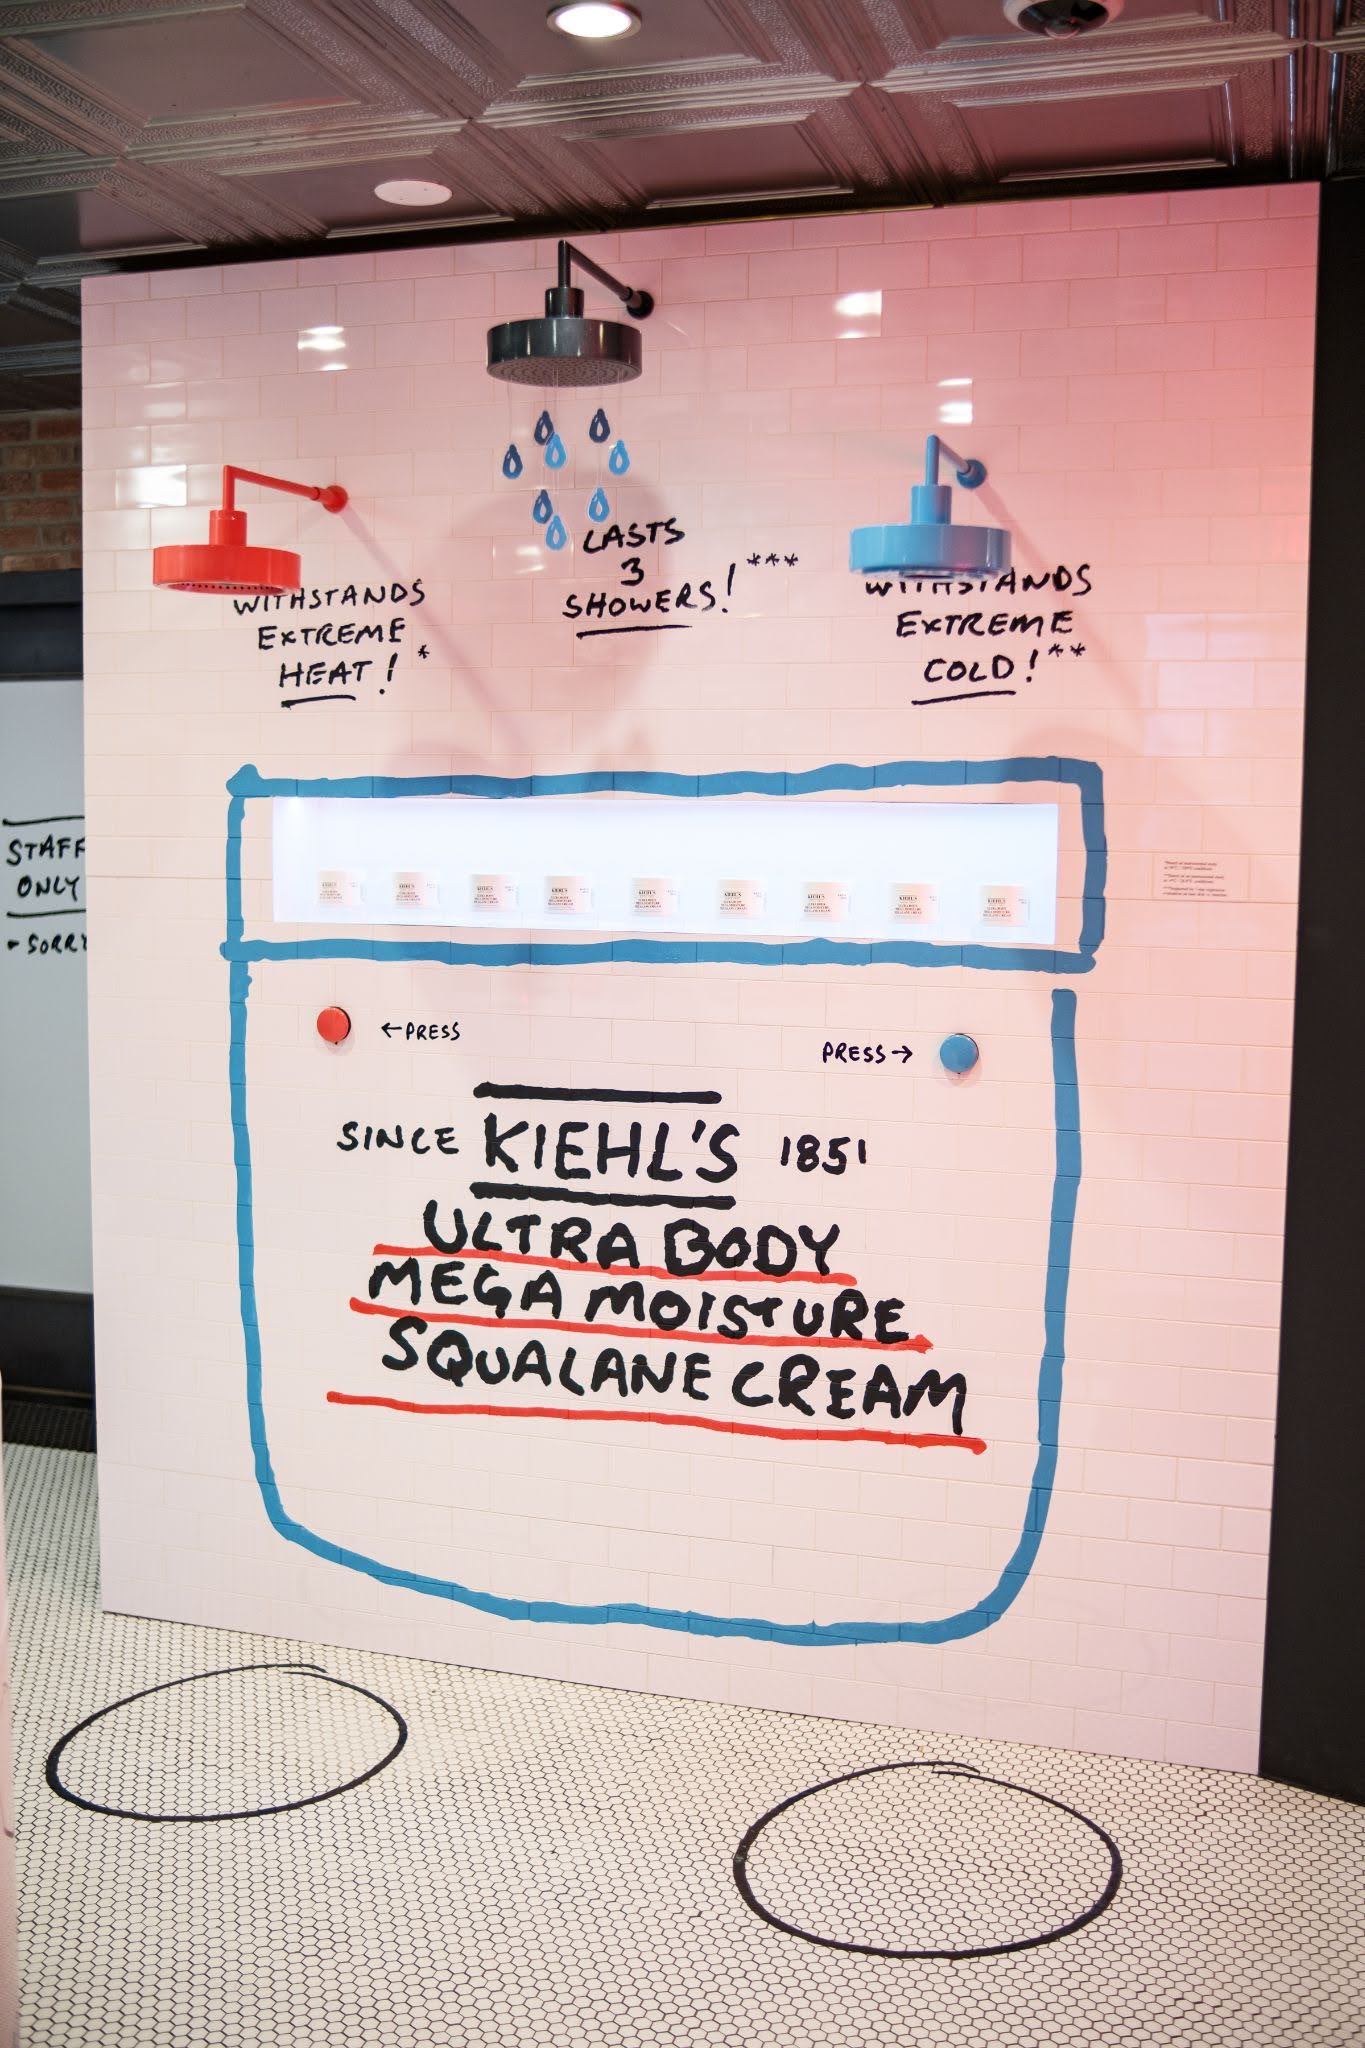 LASTS
3
SHOWERS!***
WITHSTANDS
EXTREME
HEAT!*
WITHSTANDS
EXTREME
COLD!**
STAFF
ONLY
- SORRY
KIEHL'S
← PRESS
PRESS →
SINCE KIEHL'S 1851
ULTRA BODY
MEGA MOISTURE
SQUALANE CREAM